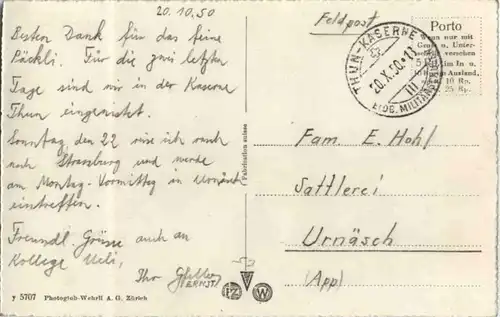 20.10.50
Besten Dank für das feine
Päckli. Für die zwei letzten
Tage sind wir in der Kaserne
Thun eingerückt.
Sonntag den 22 reise ich noch
nach Strassburg und werde
am Montag-Vormittag in Urnäsch
eintreffen.
Freundl. Grüsse auch an
Kollege Ueli,
Ihr
ERNST
Feldpost
THUN-KASERNE
20.X.50-1
III
EIDG. MILITÄR
Porto
nur mit
u. Unter-
versehen
5 im In u.
10 Ausland,
10 Rp.
25 Rp.
Fam. E. Hohl
Sattlerei
Urnäsch
(App)
Fabrication suisse
y 5707 Photoglob-Wehrli A. G. Zürich
PZ W